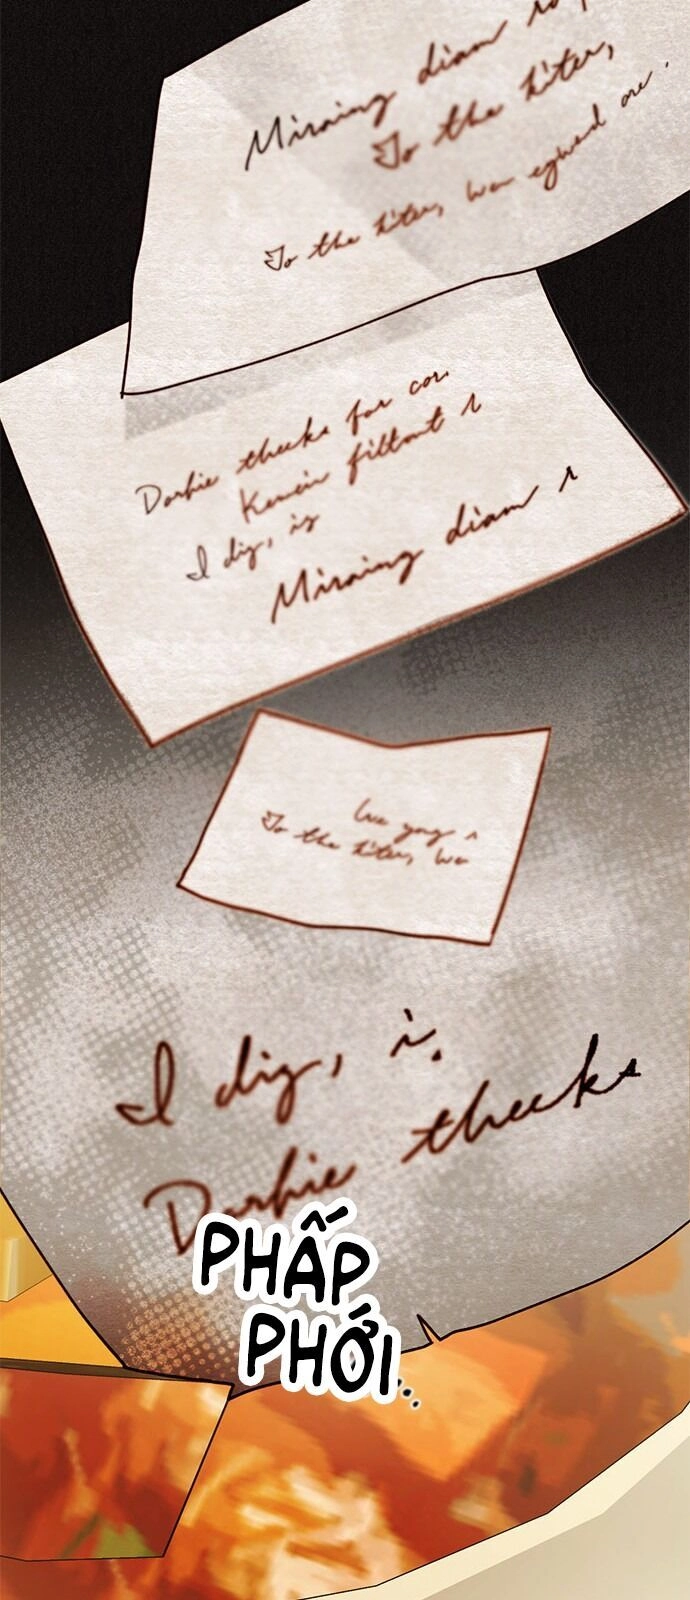 Miraing diam
To the hiter,
To the hiter, we egward are.
Darhie theeks for cor.
Kenein filtont r
I dig, is
Miraing diam r
we gag
To the hiter, we
I dig, i.
Darhie theeks
PHẤP
PHỚI...